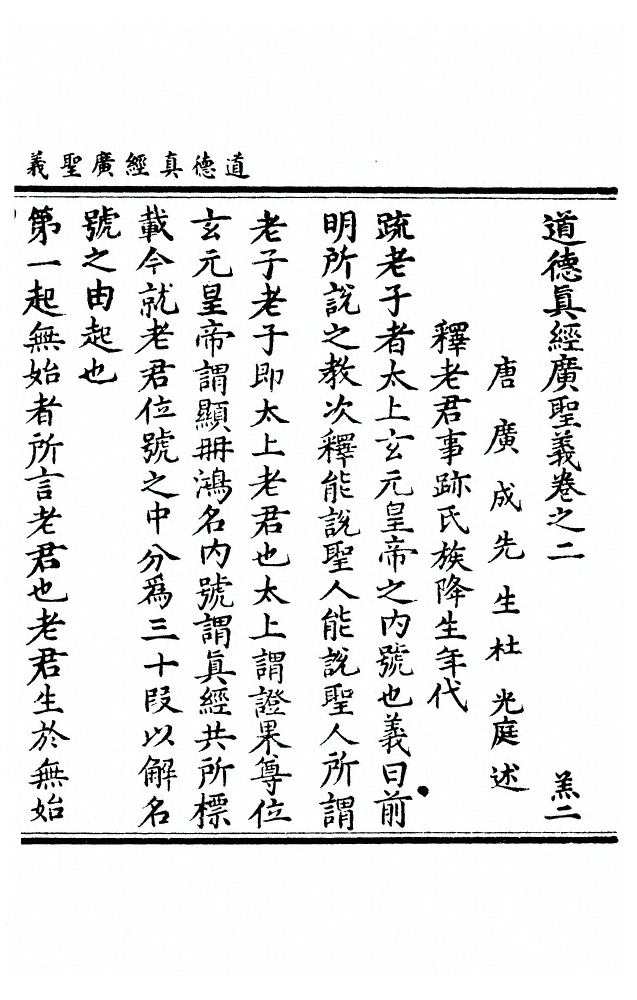 道德真經廣聖義
道德眞經廣聖義卷之二 羔二
唐廣成先生杜光庭述
釋老君事跡氏族降生年代
疏老子者太上玄元皇帝之内號也義曰前
明所說之教次釋能說聖人能說聖人所謂
老子老子即太上老君也太上謂證果尊位
玄元皇帝謂顯冊鴻名内號謂眞經共所標
載今就老君位號之中分爲三十段以解名
號之由起也
第一起無始者所言老君也老君生於無始